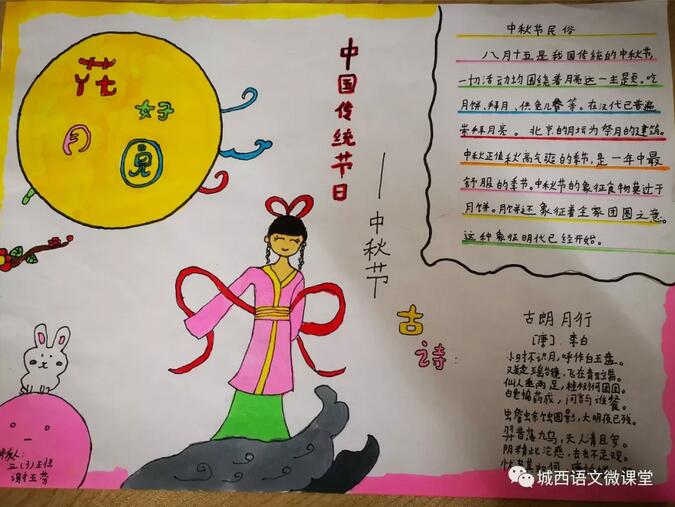 花好
月圆
中国传统节日
——中秋节
中秋节民俗
八月十五是我国传统的中秋节,
一切活动均围绕着月亮这一主题。吃
月饼、拜月、供兔儿爷等。在汉代已普遍
崇拜月亮。北京的月坛为祭月的建筑。
中秋正值秋高气爽的季节,是一年中最
舒服的季节。中秋节的象征食物莫过于
月饼。月饼还象征着全家团圆之意。
这种象征明代已经开始。
古诗:
古朗月行
[唐] 李白
小时不识月,呼作白玉盘。
又疑瑶台镜,飞在青云端。
仙人垂两足,桂树何团团。
白兔捣药成,问言与谁餐。
蟾蜍蚀圆影,大明夜已残。
羿昔落九乌,天人清且安。
阴精此沦惑,去去不足观。
三(3)班
谢玉芳
城西语文微课堂